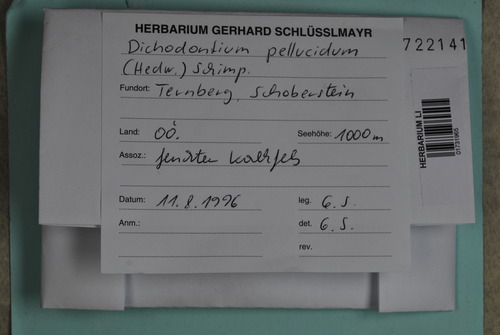 HERBARIUM GERHARD SCHLÜSSLMAYR
Dichodontium pellucidum
(Hedw.) Schimp.
Fundort: Ternberg, Schoberstein
Land: OÖ. Seehöhe: 1000m
Assoz.: feuchter Kalkfels
Datum: 11.8.1996 leg. G.S.
Anm.: det. G.S.
rev.
722141
HERBARIUM LI
01731965